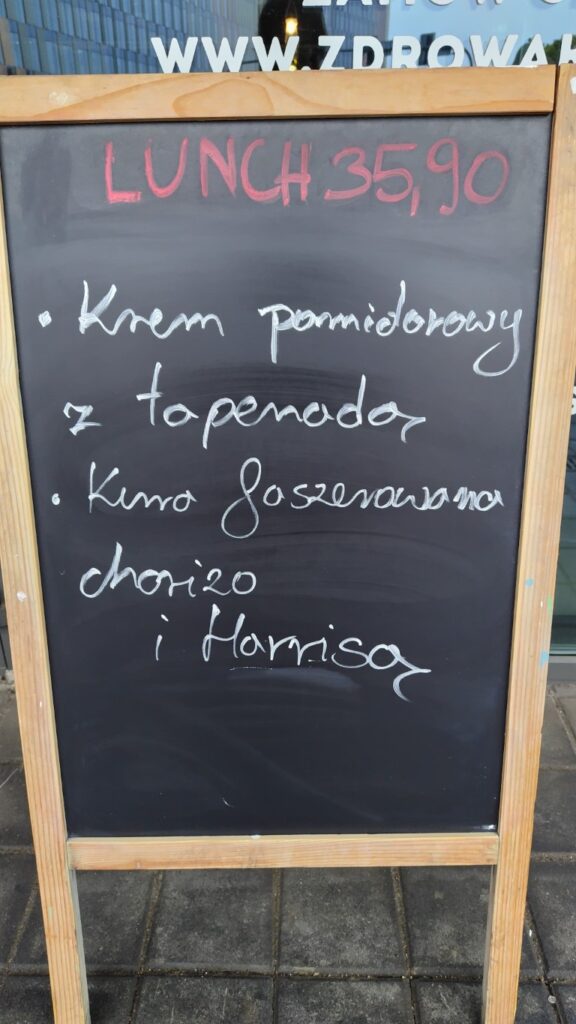 WWW.ZDROWA
LUNCH 35,90
• Krem pomidorowy
z tapenadą
• Kura faszerowana
chorizo
i Harrisą